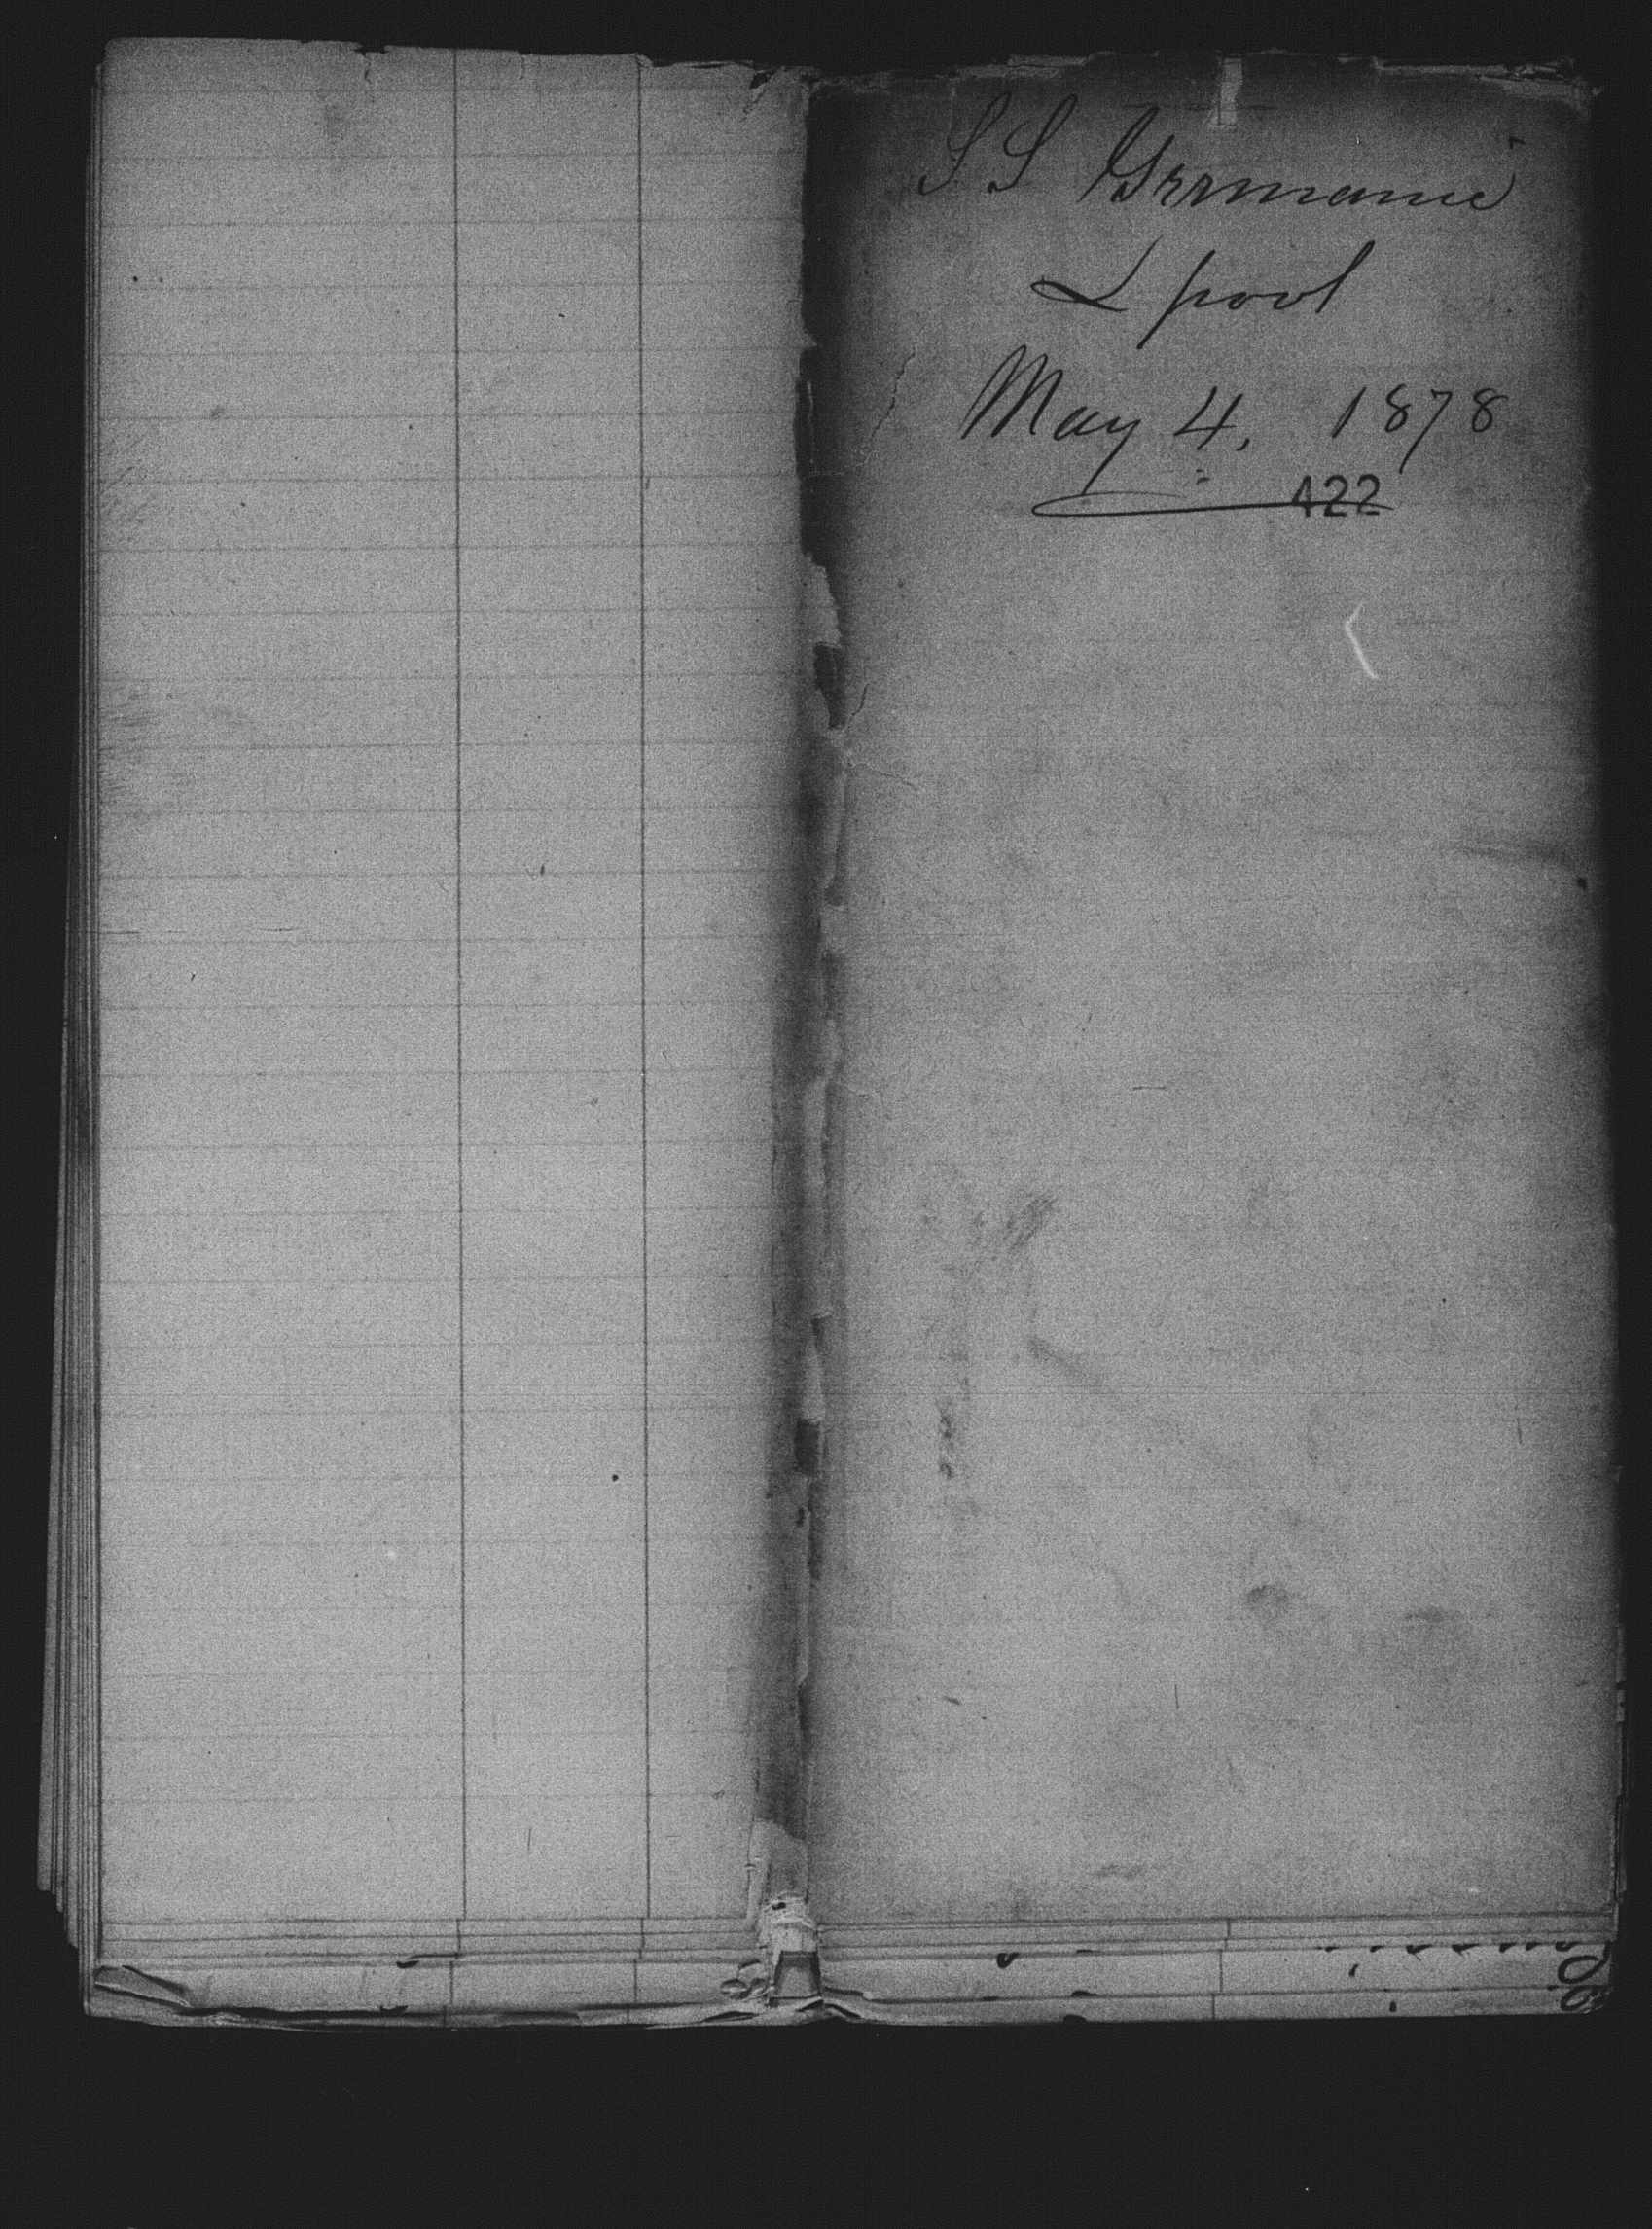 SS Germanic
L pool
May 4, 1878
422